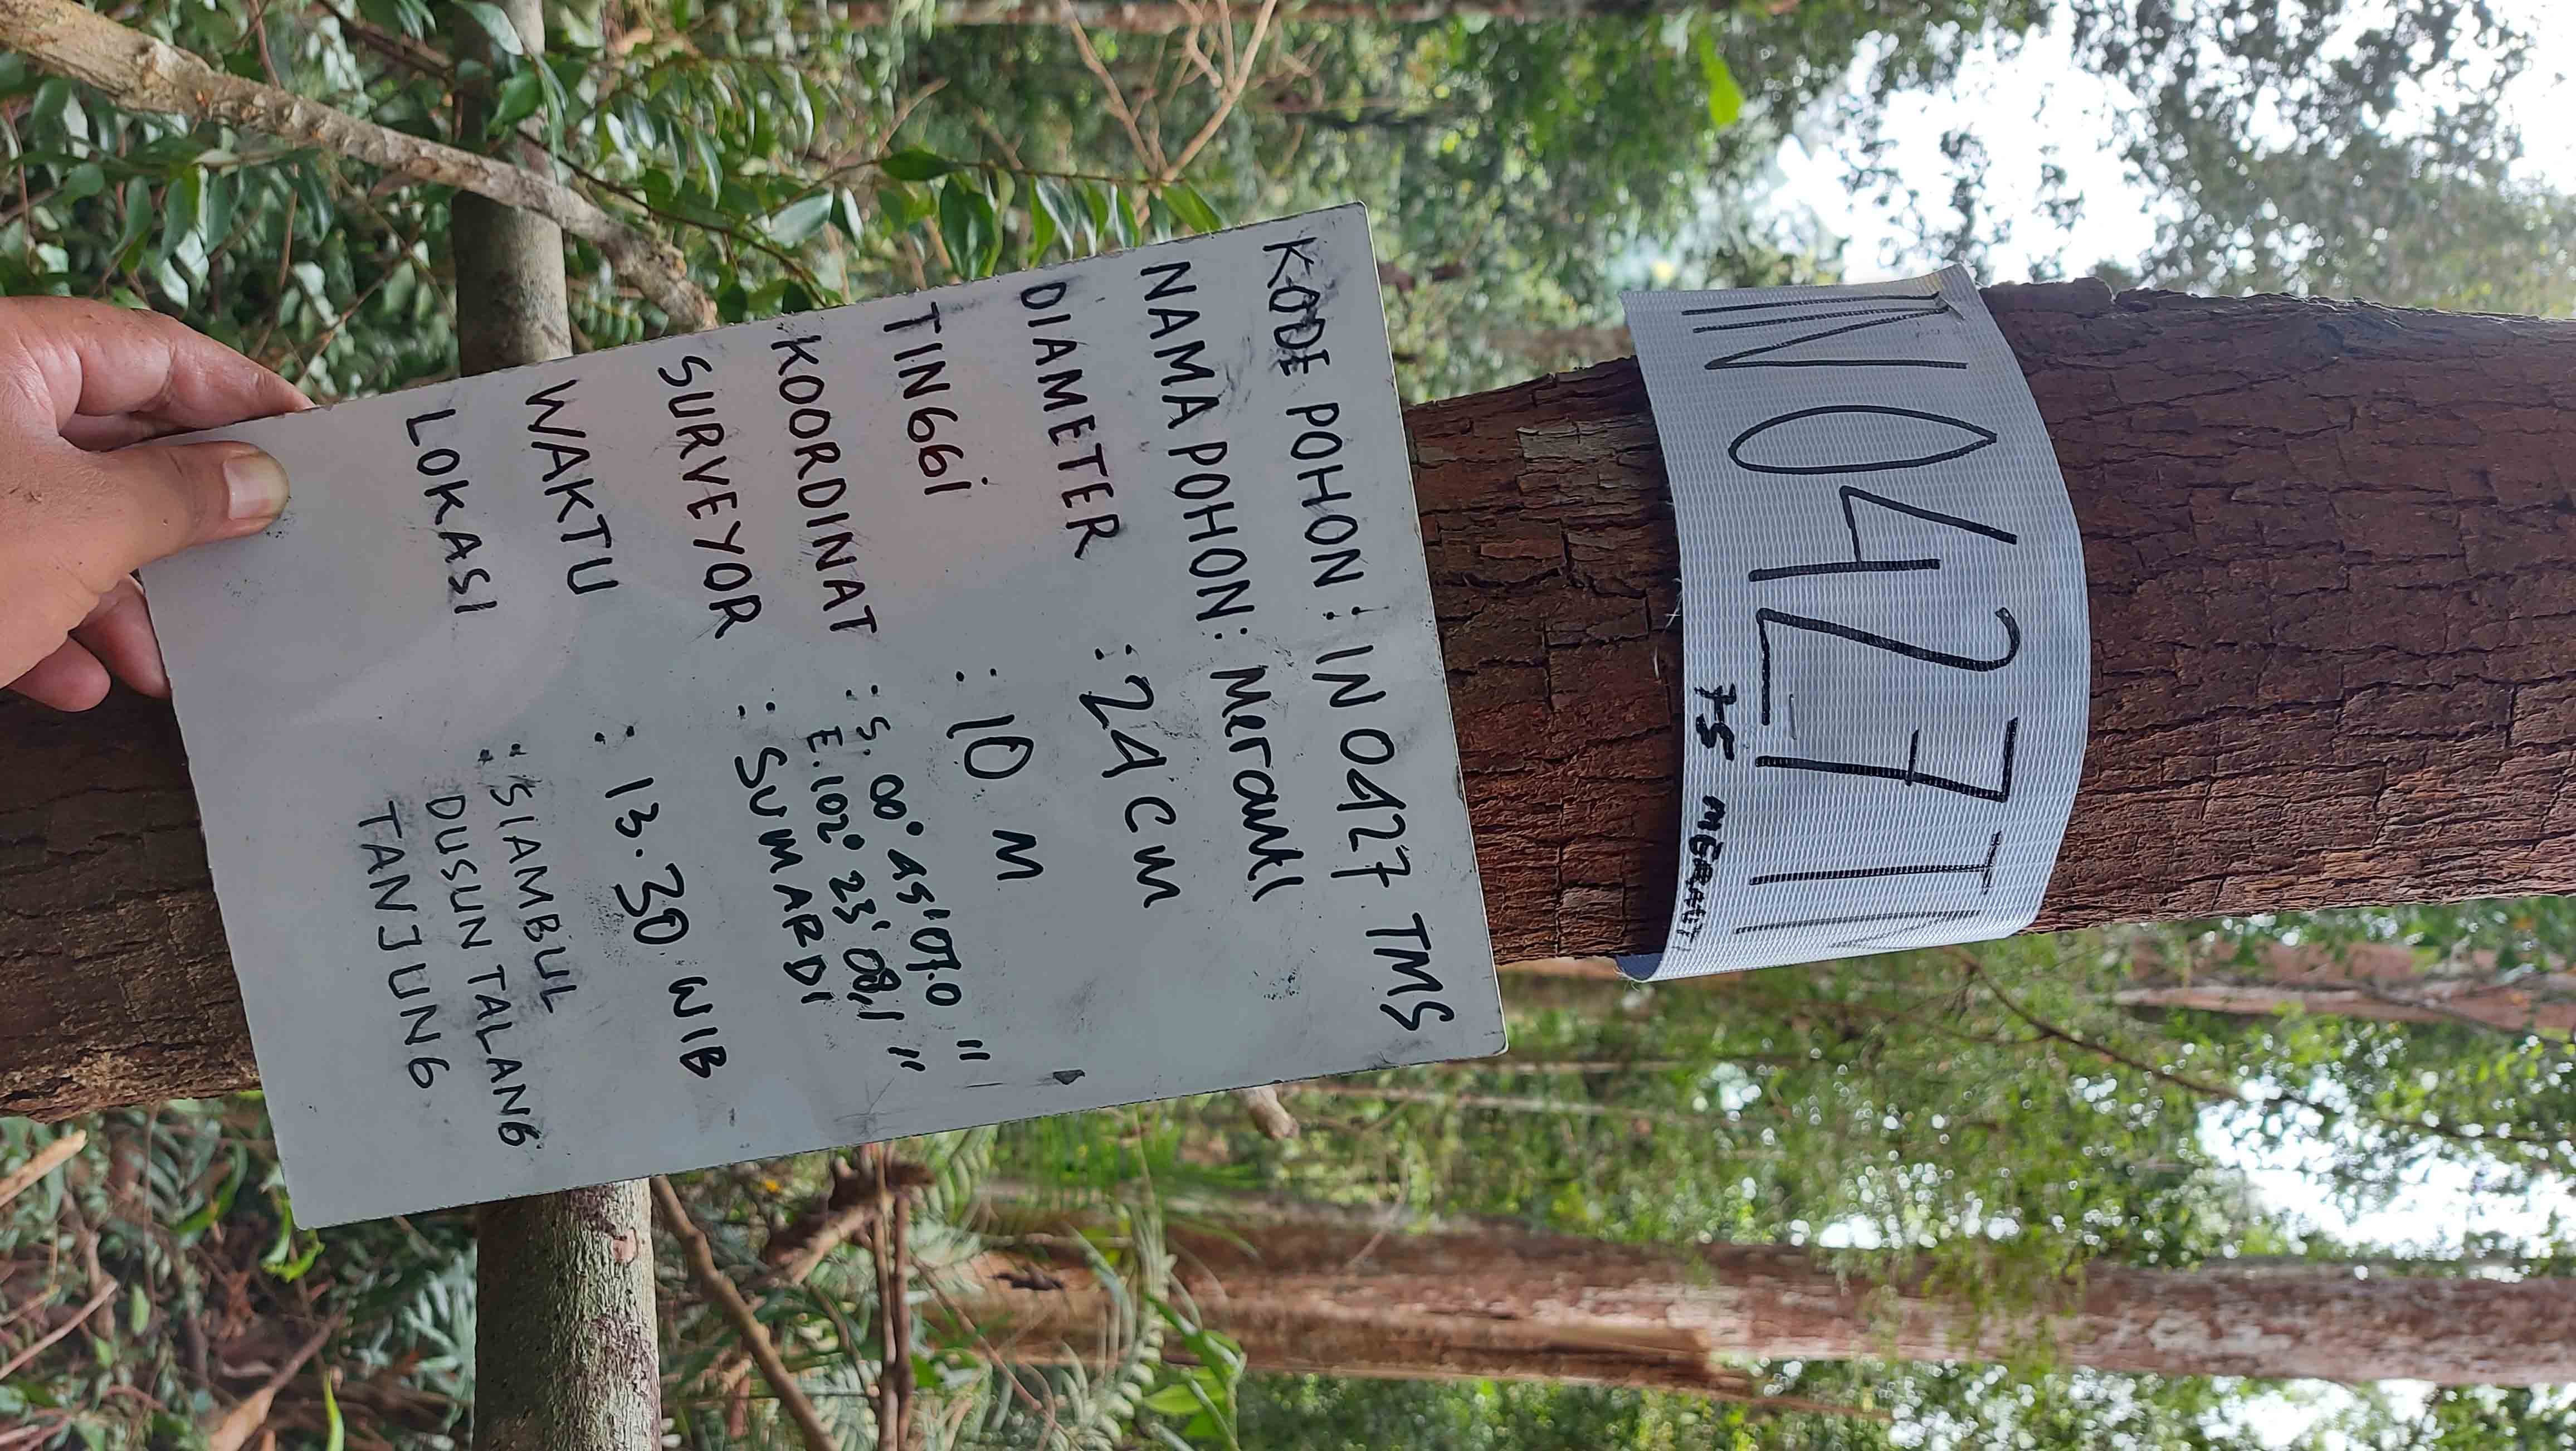 IN0427TM
75 MERANTI
KODE POHON : IN 0427 TMS
NAMA POHON : Meranti
DIAMETER : 24 cm
TINGGi : 10 M
KOORDINAT : S. 00° 45' 07.0 "
E. 102° 23' 08,1 "
SURVEYOR : SUMARDI
WAKTU : 13.30 WIB
LOKASI : SIAMBUL
DUSUN TALANG
TANJUNG